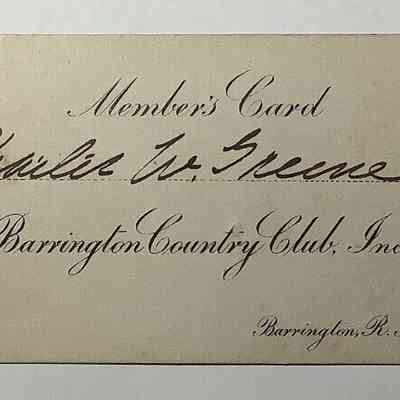 Member's Card
Charles W. Greene
Barrington Country Club, Inc
Barrington, R.